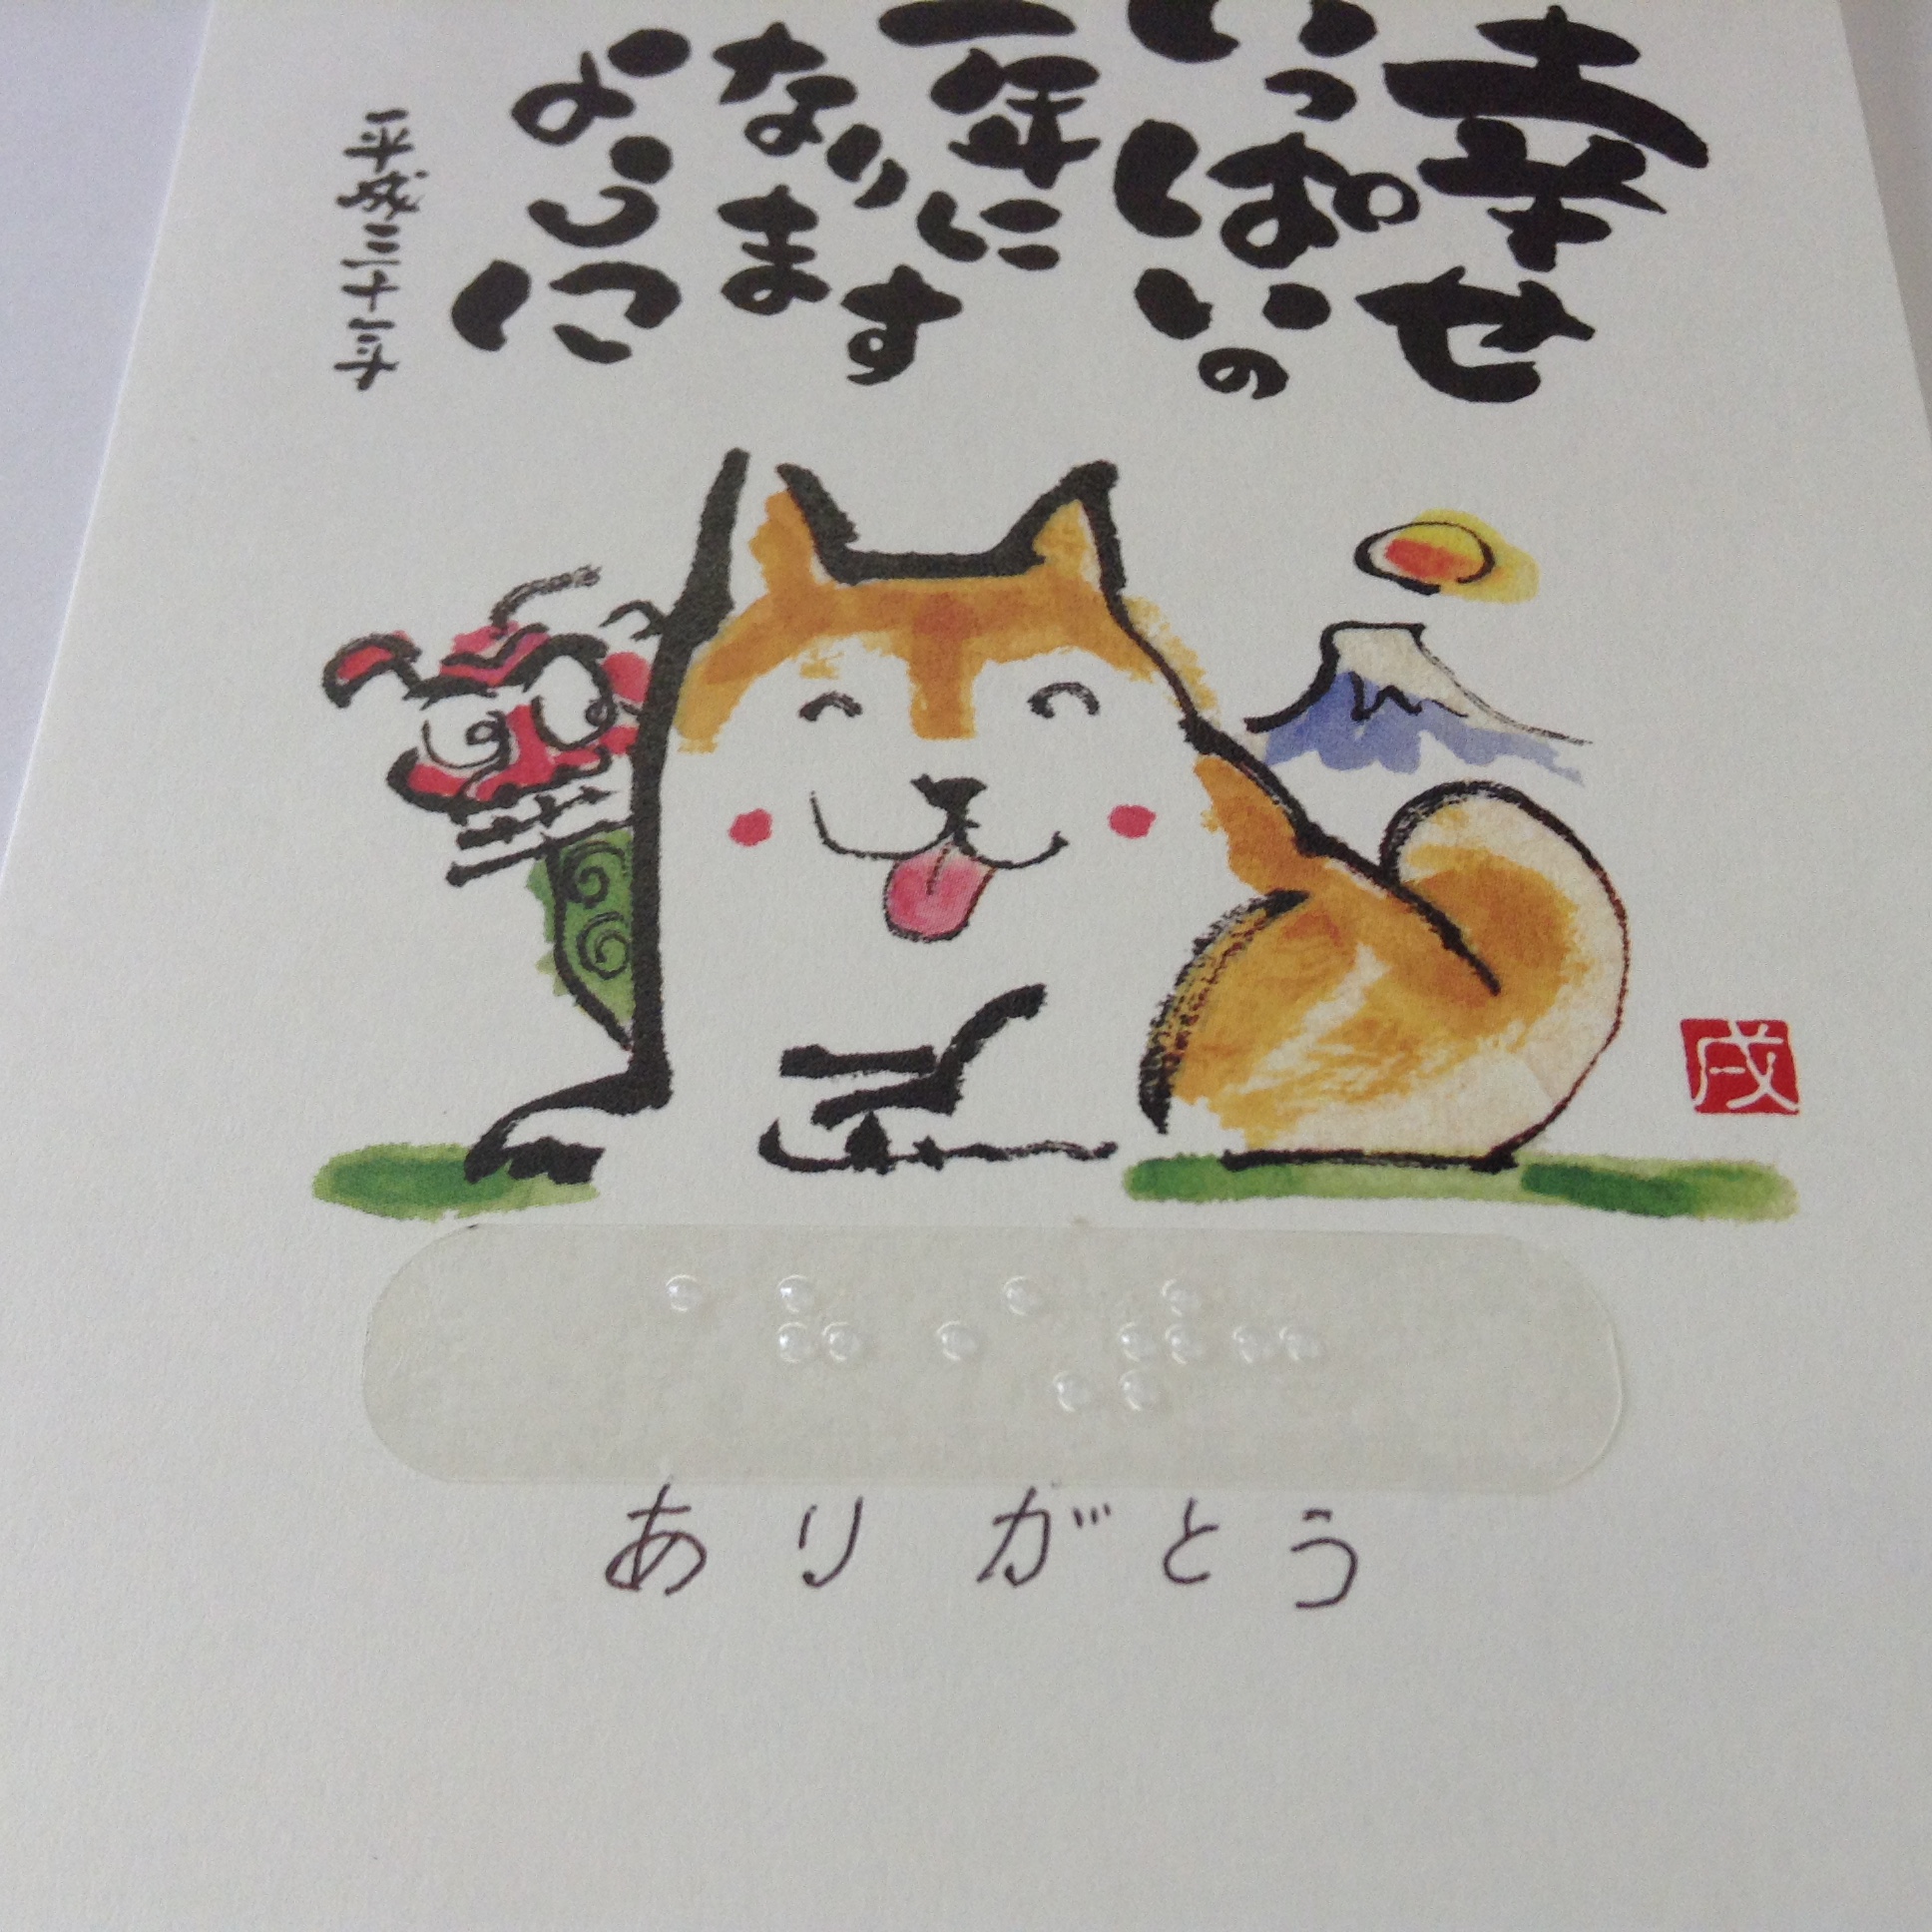 幸せ
いっぱいの
一年に
なります
ように
平成三十年
戌
⠁⠓⠐⠡⠞⠒
ありがとう